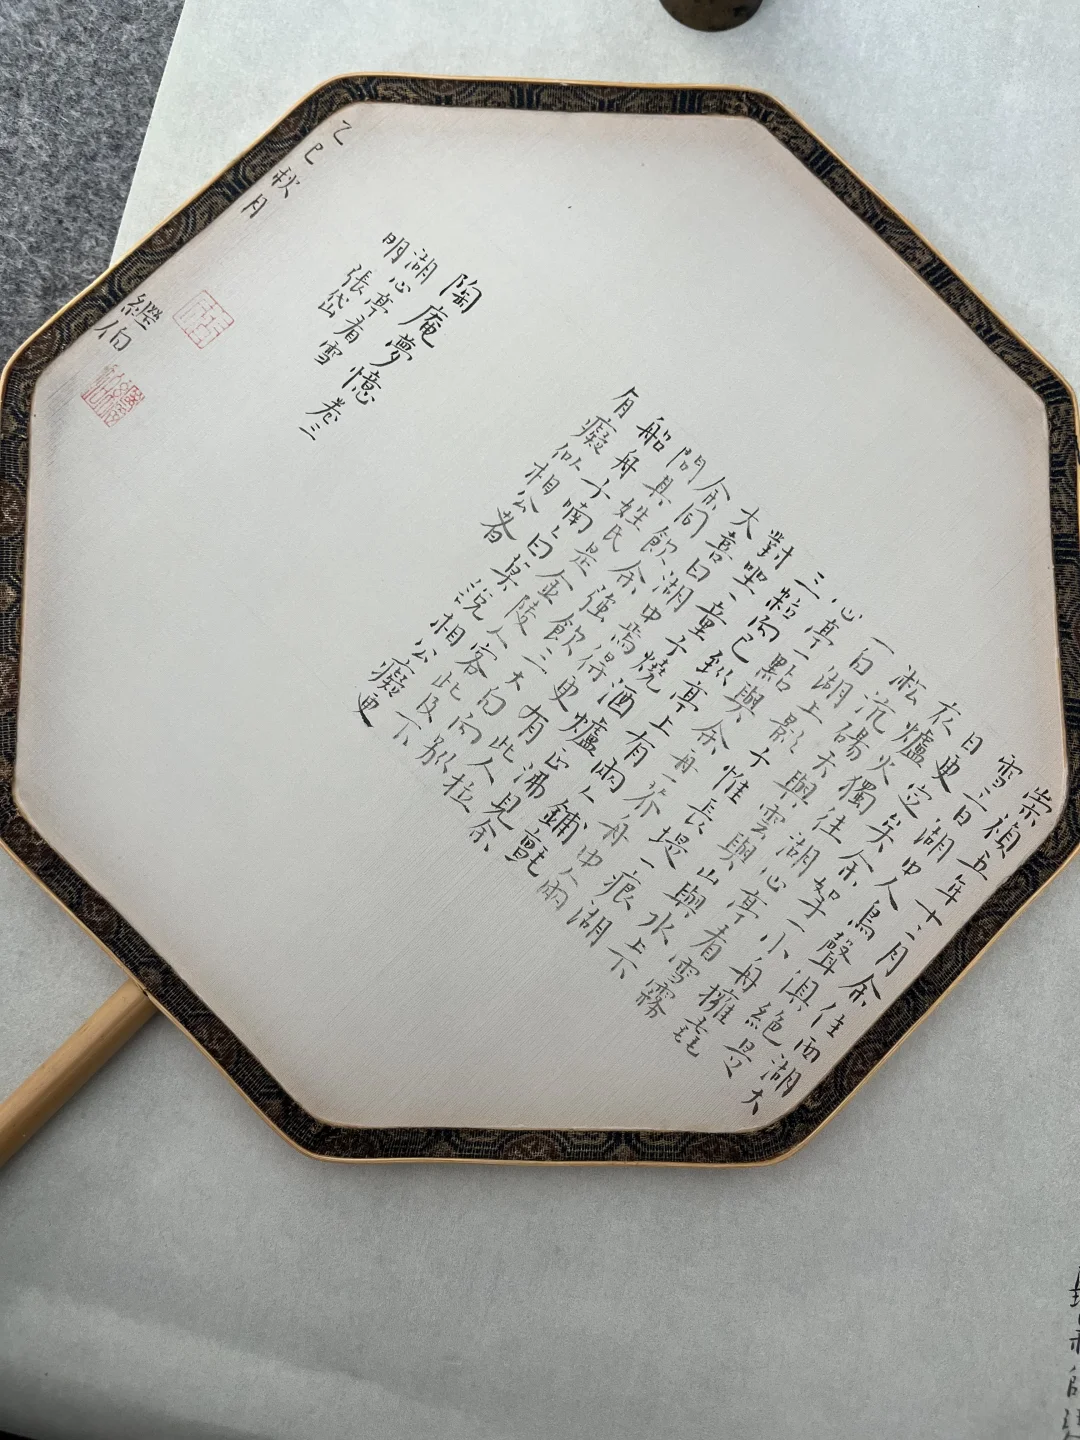 崇禎五年十二月余住西湖大
雪三日湖中人鳥聲俱絕是
日更定矣余拏一小舟擁毳
衣爐火獨往湖心亭看雪霧
淞沆碭天與雲與山與水上下
一白湖上影子惟長堤一痕湖
心亭一點與余舟一芥舟中人兩
三粒而已到亭上有兩人鋪氈
對坐一童子燒酒爐正沸見余
大喜曰湖中焉得更有此人拉
余同飲余強飲三大白而別
問其姓氏是金陵人客此及下
船舟子喃喃曰莫說相公癡更
有癡似相公者
陶庵夢憶卷三
湖心亭看雪
明張岱
乙巳秋月
伯